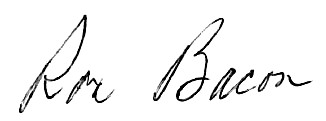 Ron Bacon